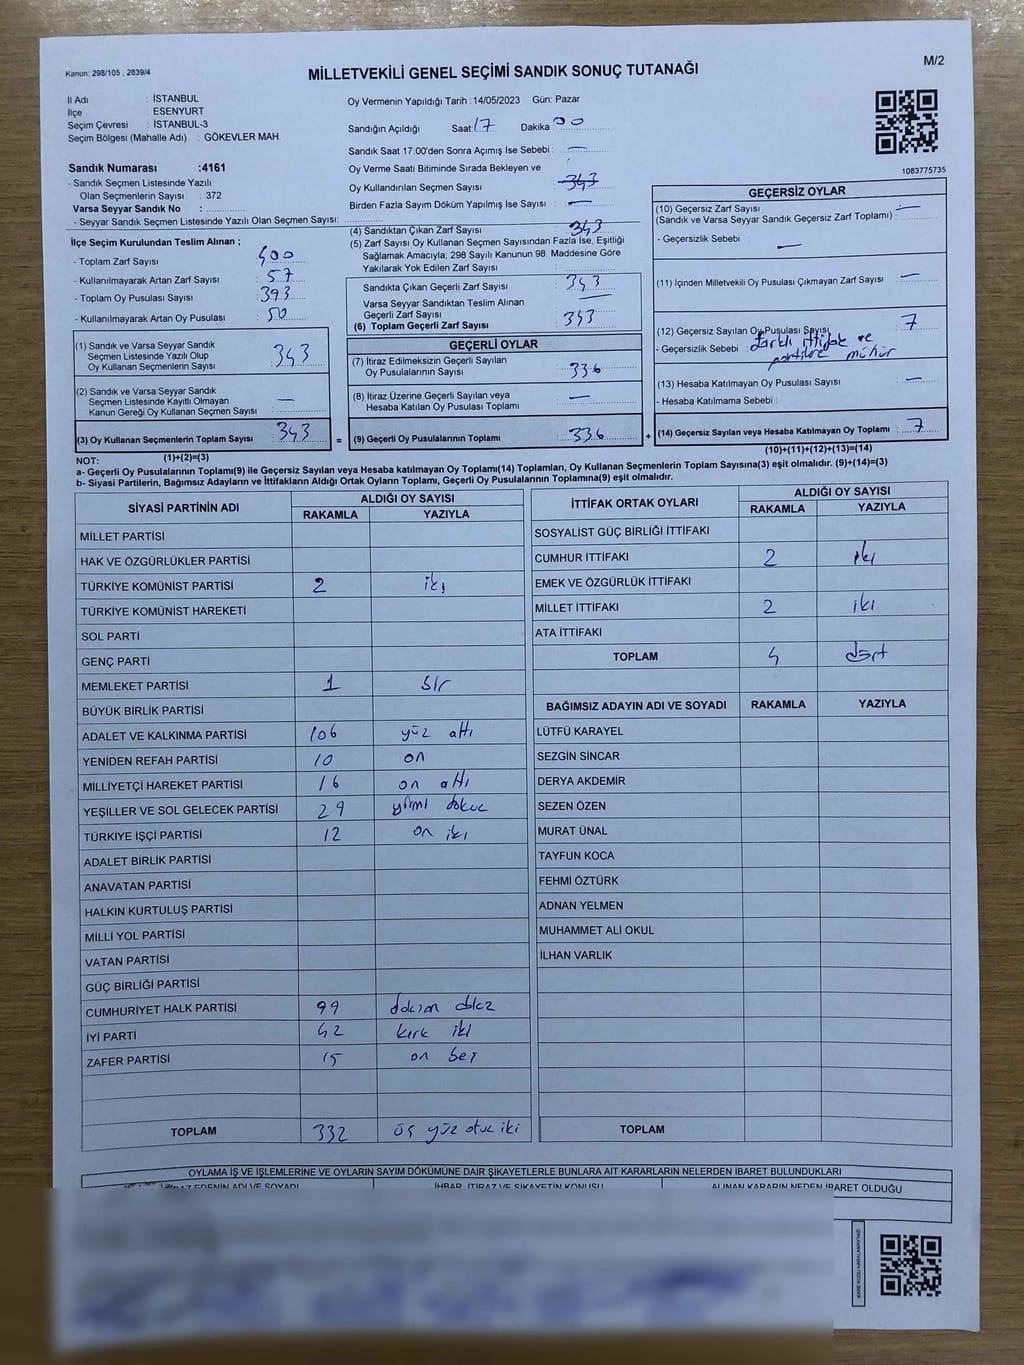 Kanun: 298/105 , 2839/4
MİLLETVEKİLİ GENEL SEÇİMİ SANDIK SONUÇ TUTANAĞI
M/2
İl Adı : İSTANBUL
İlçe : ESENYURT
Seçim Çevresi : İSTANBUL-3
Seçim Bölgesi (Mahalle Adı) : GÖKEVLER MAH.
Oy Vermenin Yapıldığı Tarih :14/05/2023 Gün: Pazar
Sandığın Açıldığı Saat: 17 Dakika 00
Sandık Saat 17:00'den Sonra Açımış İse Sebebi : —
Oy Verme Saati Bitiminde Sırada Bekleyen ve
Oy Kullandırılan Seçmen Sayısı 343
Birden Fazla Sayım Döküm Yapılmış İse Sayısı : —
1083775735
Sandık Numarası :4161
- Sandık Seçmen Listesinde Yazılı
Olan Seçmenlerin Sayısı : 372
Varsa Seyyar Sandık No :
- Seyyar Sandık Seçmen Listesinde Yazılı Olan Seçmen Sayısı:
İlçe Seçim Kurulundan Teslim Alınan ;
- Toplam Zarf Sayısı : 400
- Kullanılmayarak Artan Zarf Sayısı : 57
- Toplam Oy Pusulası Sayısı : 393
- Kullanılmayarak Artan Oy Pusulası : 50
(1) Sandık ve Varsa Seyyar Sandık
Seçmen Listesinde Yazılı Olup
Oy Kullanan Seçmenlerin Sayısı : 343
(2) Sandık ve Varsa Seyyar Sandık
Seçmen Listesinde Kayıtlı Olmayan
Kanun Gereği Oy Kullanan Seçmen Sayısı : —
(3) Oy Kullanan Seçmenlerin Toplam Sayısı : 343
(1)+(2)=(3)
(4) Sandıktan Çıkan Zarf Sayısı : 343
(5) Zarf Sayısı Oy Kullanan Seçmen Sayısından Fazla İse, Eşitliği
Sağlamak Amacıyla; 298 Sayılı Kanunun 98. Maddesine Göre
Yakılarak Yok Edilen Zarf Sayısı :
Sandıkta Çıkan Geçerli Zarf Sayısı : 343
Varsa Seyyar Sandıktan Teslim Alınan
Geçerli Zarf Sayısı : —
(6) Toplam Geçerli Zarf Sayısı : 343
GEÇERLİ OYLAR
(7) İtiraz Edilmeksizin Geçerli Sayılan
Oy Pusulalarının Sayısı : 336
(8) İtiraz Üzerine Geçerli Sayılan veya
Hesaba Katılan Oy Pusulası Toplamı : —
= (9) Geçerli Oy Pusulalarının Toplamı : 336
GEÇERSİZ OYLAR
(10) Geçersiz Zarf Sayısı : —
(Sandık ve Varsa Seyyar Sandık Geçersiz Zarf Toplamı)
- Geçersizlik Sebebi : —
(11) İçinden Milletvekili Oy Pusulası Çıkmayan Zarf Sayısı : —
(12) Geçersiz Sayılan Oy Pusulası Sayısı : 7
- Geçersizlik Sebebi : farklı ittifak ve
partilere mühür
(13) Hesaba Katılmayan Oy Pusulası Sayısı : —
- Hesaba Katılmama Sebebi :
+ (14) Geçersiz Sayılan veya Hesaba Katılmayan Oy Toplamı : 7
(10)+(11)+(12)+(13)=(14)
NOT:
a- Geçerli Oy Pusulalarının Toplamı(9) ile Geçersiz Sayılan veya Hesaba katılmayan Oy Toplamı(14) Toplamları, Oy Kullanan Seçmenlerin Toplam Sayısına(3) eşit olmalıdır. (9)+(14)=(3)
b- Siyasi Partilerin, Bağımsız Adayların ve İttifakların Aldığı Ortak Oyların Toplamı, Geçerli Oy Pusulalarının Toplamına(9) eşit olmalıdır.
SİYASİ PARTİNİN ADI ALDIĞI OY SAYISI
RAKAMLA YAZIYLA
MİLLET PARTİSİ
HAK VE ÖZGÜRLÜKLER PARTİSİ
TÜRKİYE KOMÜNİST PARTİSİ 2 iki
TÜRKİYE KOMÜNİST HAREKETİ
SOL PARTİ
GENÇ PARTİ
MEMLEKET PARTİSİ 1 bir
BÜYÜK BİRLİK PARTİSİ
ADALET VE KALKINMA PARTİSİ 106 yüz altı
YENİDEN REFAH PARTİSİ 10 on
MİLLİYETÇİ HAREKET PARTİSİ 16 on altı
YEŞİLLER VE SOL GELECEK PARTİSİ 29 yirmi dokuz
TÜRKİYE İŞÇİ PARTİSİ 12 on iki
ADALET BİRLİK PARTİSİ
ANAVATAN PARTİSİ
HALKIN KURTULUŞ PARTİSİ
MİLLİ YOL PARTİSİ
VATAN PARTİSİ
GÜÇ BİRLİĞİ PARTİSİ
CUMHURİYET HALK PARTİSİ 99 doksan dokuz
İYİ PARTİ 42 kırk iki
ZAFER PARTİSİ 15 on beş
TOPLAM 332 üç yüz otuz iki
İTTİFAK ORTAK OYLARI ALDIĞI OY SAYISI
RAKAMLA YAZIYLA
SOSYALİST GÜÇ BİRLİĞİ İTTİFAKI
CUMHUR İTTİFAKI 2 iki
EMEK VE ÖZGÜRLÜK İTTİFAKI
MİLLET İTTİFAKI 2 iki
ATA İTTİFAKI
TOPLAM 4 dört
BAĞIMSIZ ADAYIN ADI VE SOYADI RAKAMLA YAZIYLA
LÜTFÜ KARAYEL
SEZGİN SİNCAR
DERYA AKDEMİR
SEZEN ÖZEN
MURAT ÜNAL
TAYFUN KOCA
FEHMİ ÖZTÜRK
ADNAN YELMEN
MUHAMMET ALİ OKUL
İLHAN VARLIK
TOPLAM
OYLAMA İŞ VE İŞLEMLERİNE VE OYLARIN SAYIM DÖKÜMÜNE DAİR ŞİKAYETLERLE BUNLARA AİT KARARLARIN NELERDEN İBARET BULUNDUKLARI
EDENİN ADI VE SOYADI İHBAR, İTİRAZ VE ŞİKAYETİN KONUSU ALINAN KARARIN NEDEN İBARET OLDUĞU